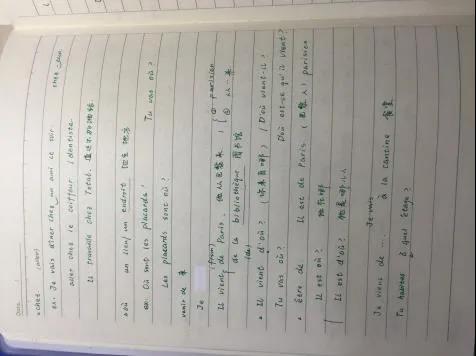 Date
• chez (alien)
ex. Je vais dîner chez un ami ce soir. chez
aller chez le coiffeur / dentiste
Il travaille chez Total.
• où un lieu / un endroit 地方
ex. Où sont les placards? Tu vas où?
Les placards sont où?
venir de 来
Je (from) ① parisien
Il vient de Paris. 他从巴黎来 ② 从…来
de la bibliothèque 图书馆
• Il vient d'où? (你来自哪) (D'où vient-il?
Tu vas où? D'où est-ce qu'il vient?
• être de Il est de Paris (巴黎人) parisien
Il est où? 他在哪
Il est d'où? 他是哪儿人
Je viens de .... Je vais à la cantine 食堂
Tu habites à quel étage?